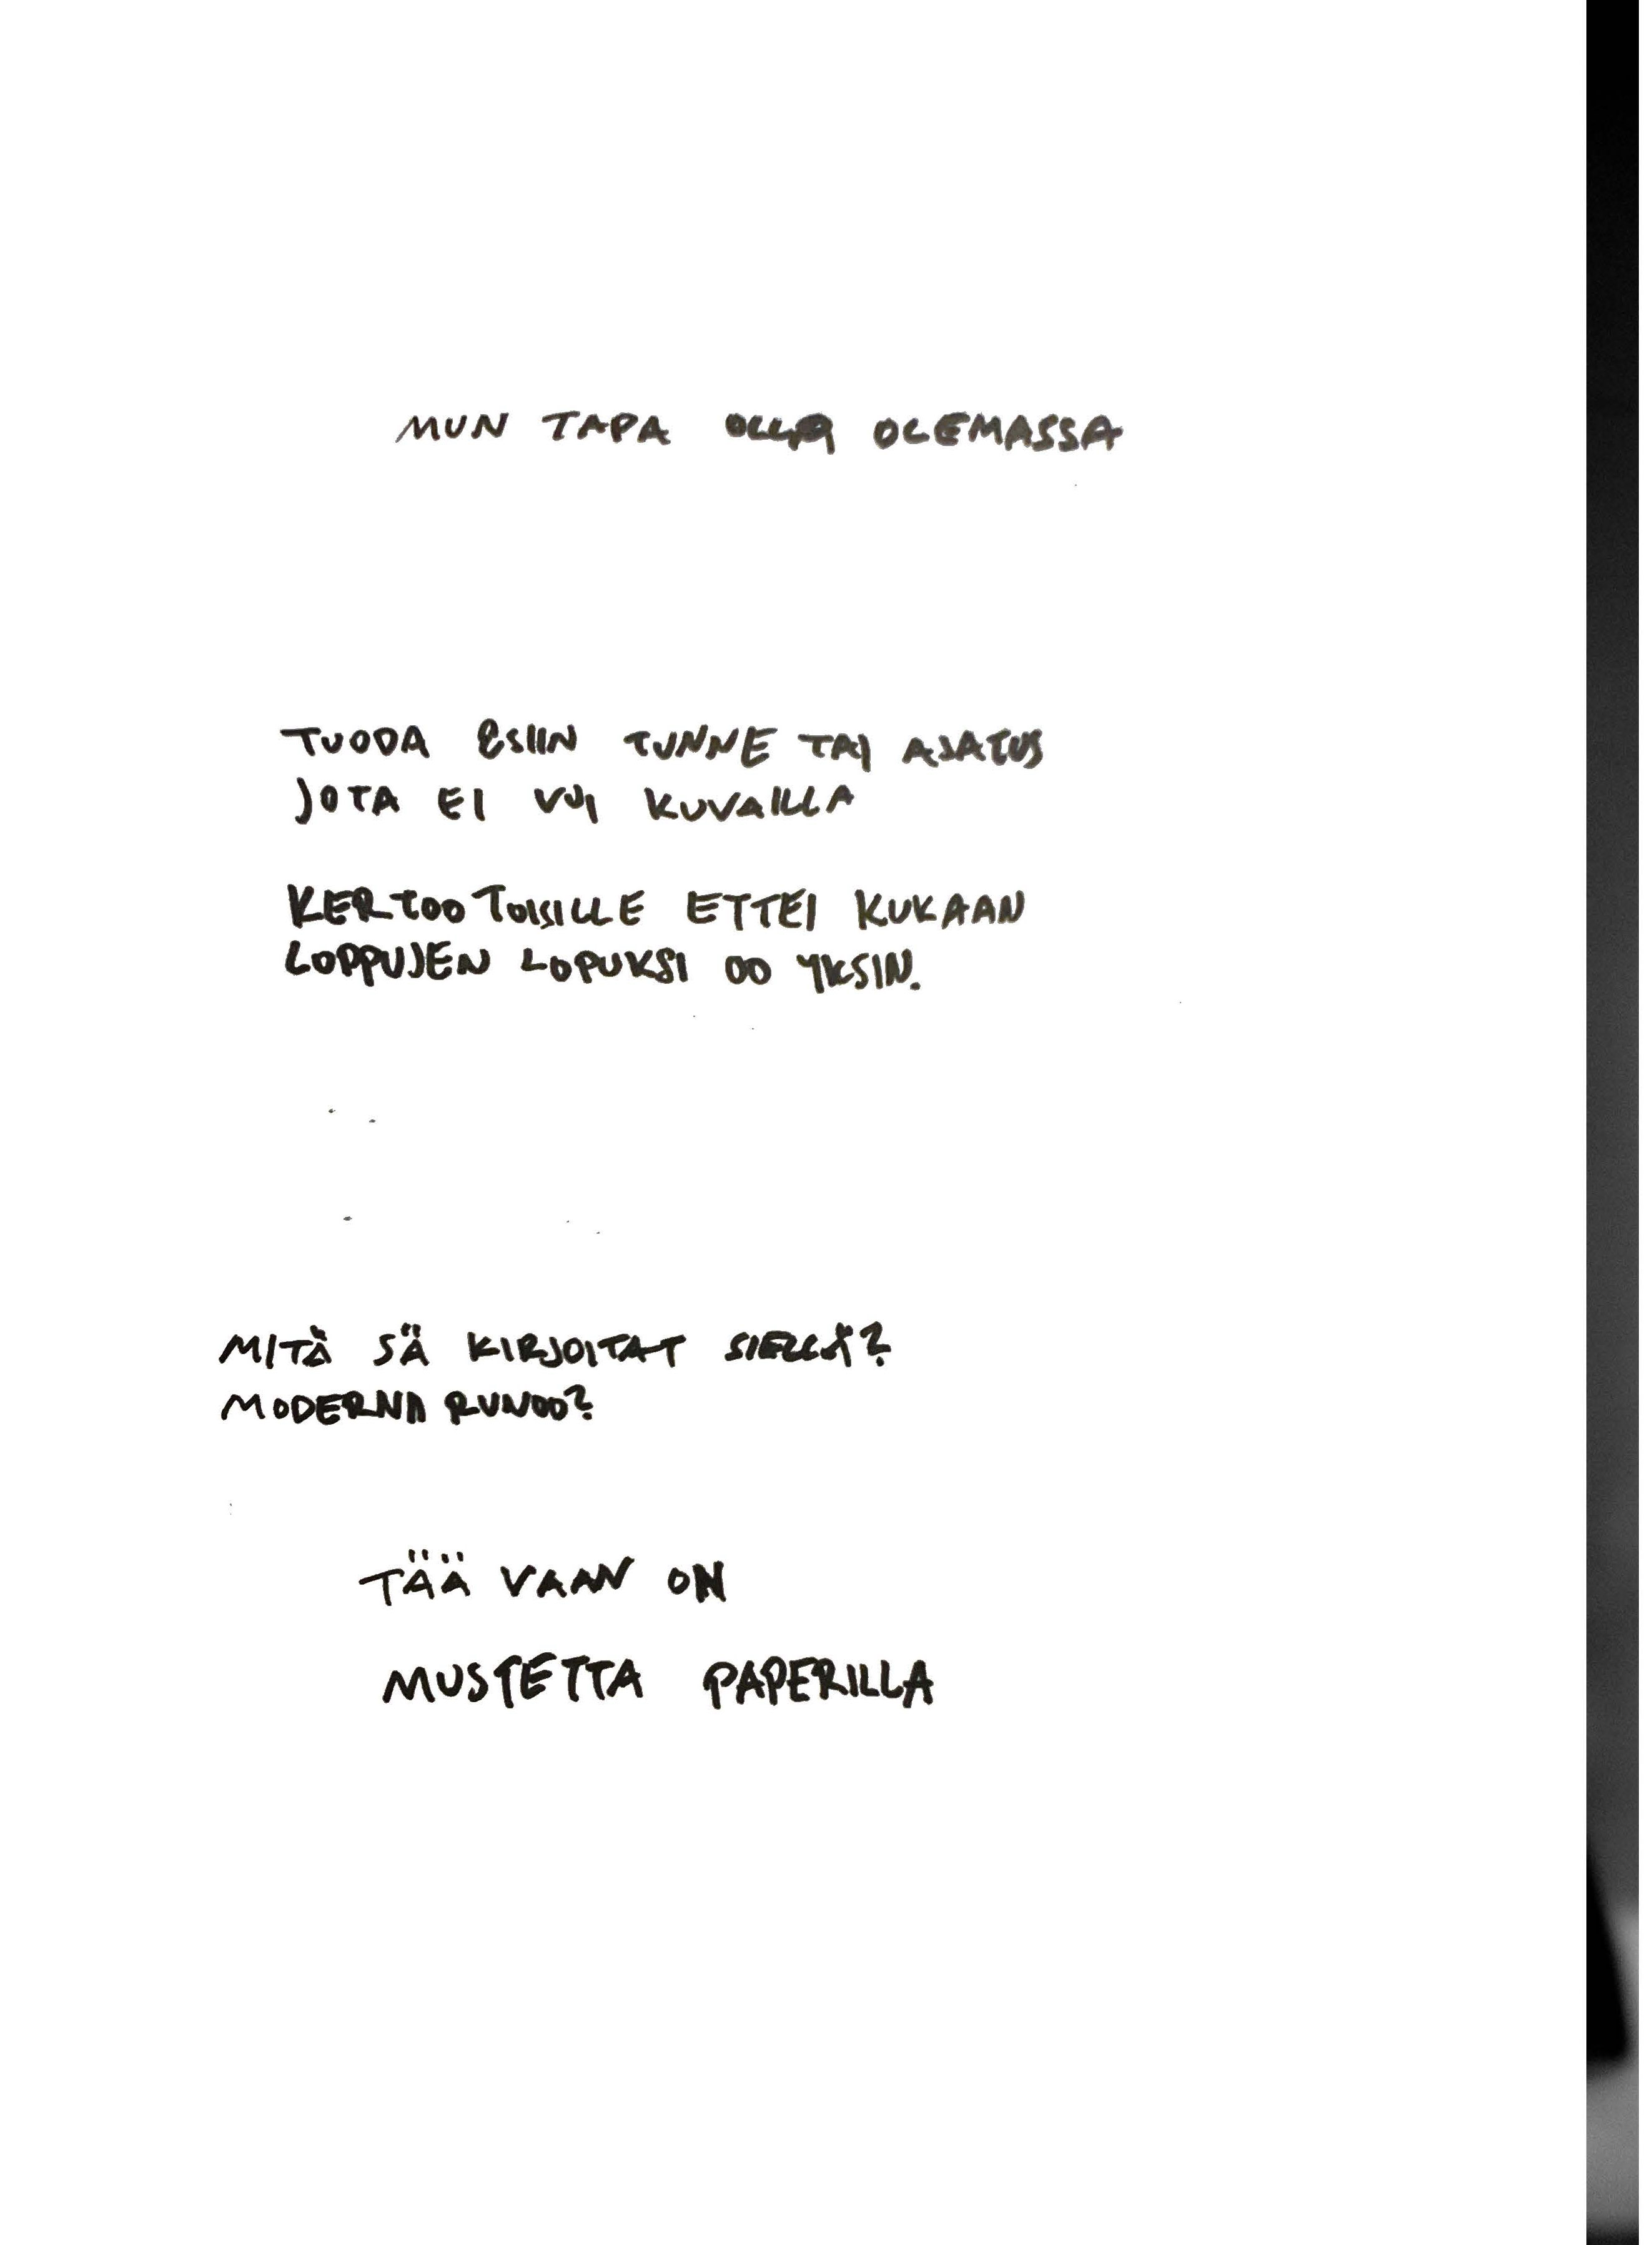 MUN TAPA OLLA OLEMASSA
TUODA ESIIN TUNNE TAI AJATUS
JOTA EI VOI KUVAILLA
KERTOO TOISILLE ETTEI KUKAAN
LOPPUJEN LOPUKSI OO YKSIN.
MITÄ SÄ KIRJOITAT SIELLÄ?
MODERNII RUNOO?
TÄÄ VAAN ON
MUSTETTA PAPERILLA